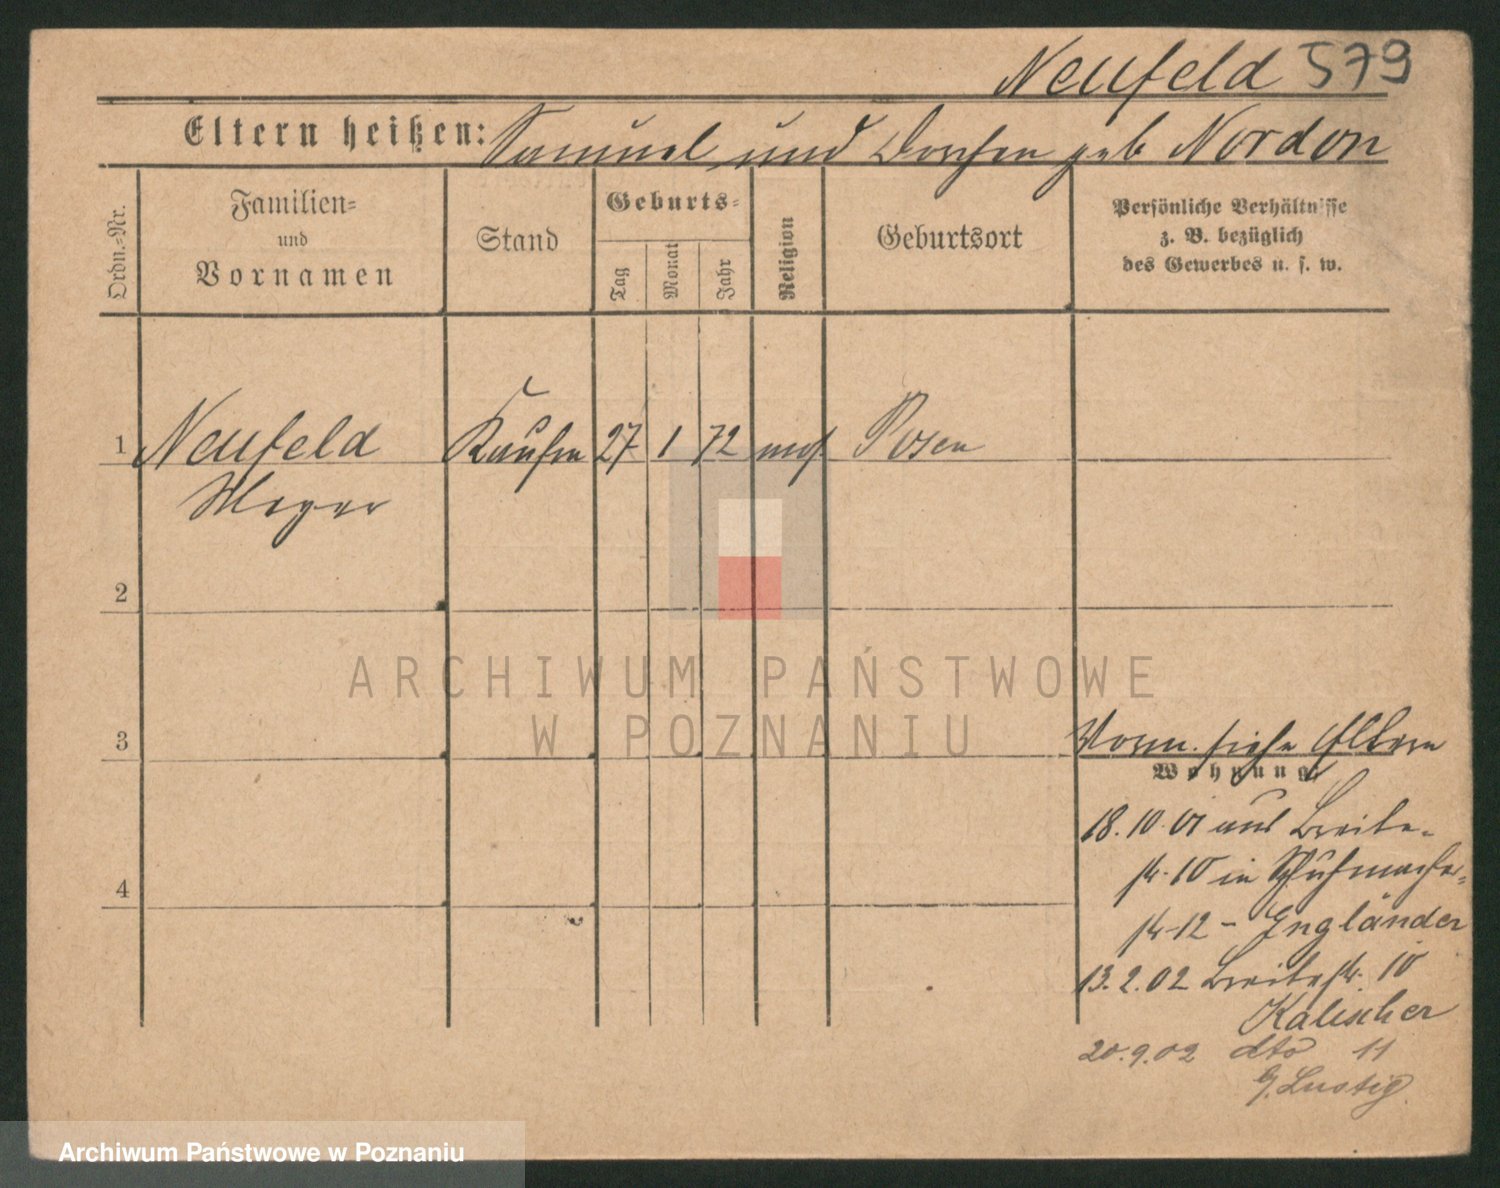 Neufeld 579
Eltern heißen: Samuel und Dorchen geb Nordon
Ordn.=Nr.
Familien=
und
Vornamen
Stand
Geburts=
Tag
Monat
Jahr
Religion
Geburtsort
Persönliche Verhältnisse
z. B. bezüglich
des Gewerbes u. s. w.
1 Neufeld Kaufm 27 1 72 mos Posen
Meyer
2
ARCHIWUM PAŃSTWOWE
W POZNANIU
3
Vorm. siehe Eltern
Wohnung
18.10.01 aus Breite-
str. 10 in Schuhmacher=
str 12 - Engländer
13.2.02 Breitestr. 10
Kalischer
20.9.02 dto 11
b/ Lustig.
4
Archiwum Państwowe w Poznaniu